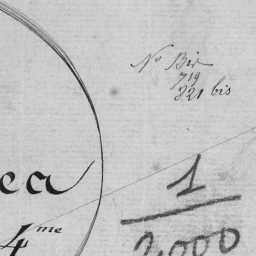 No Bis
719
821 bis
ea
4me
1
2000